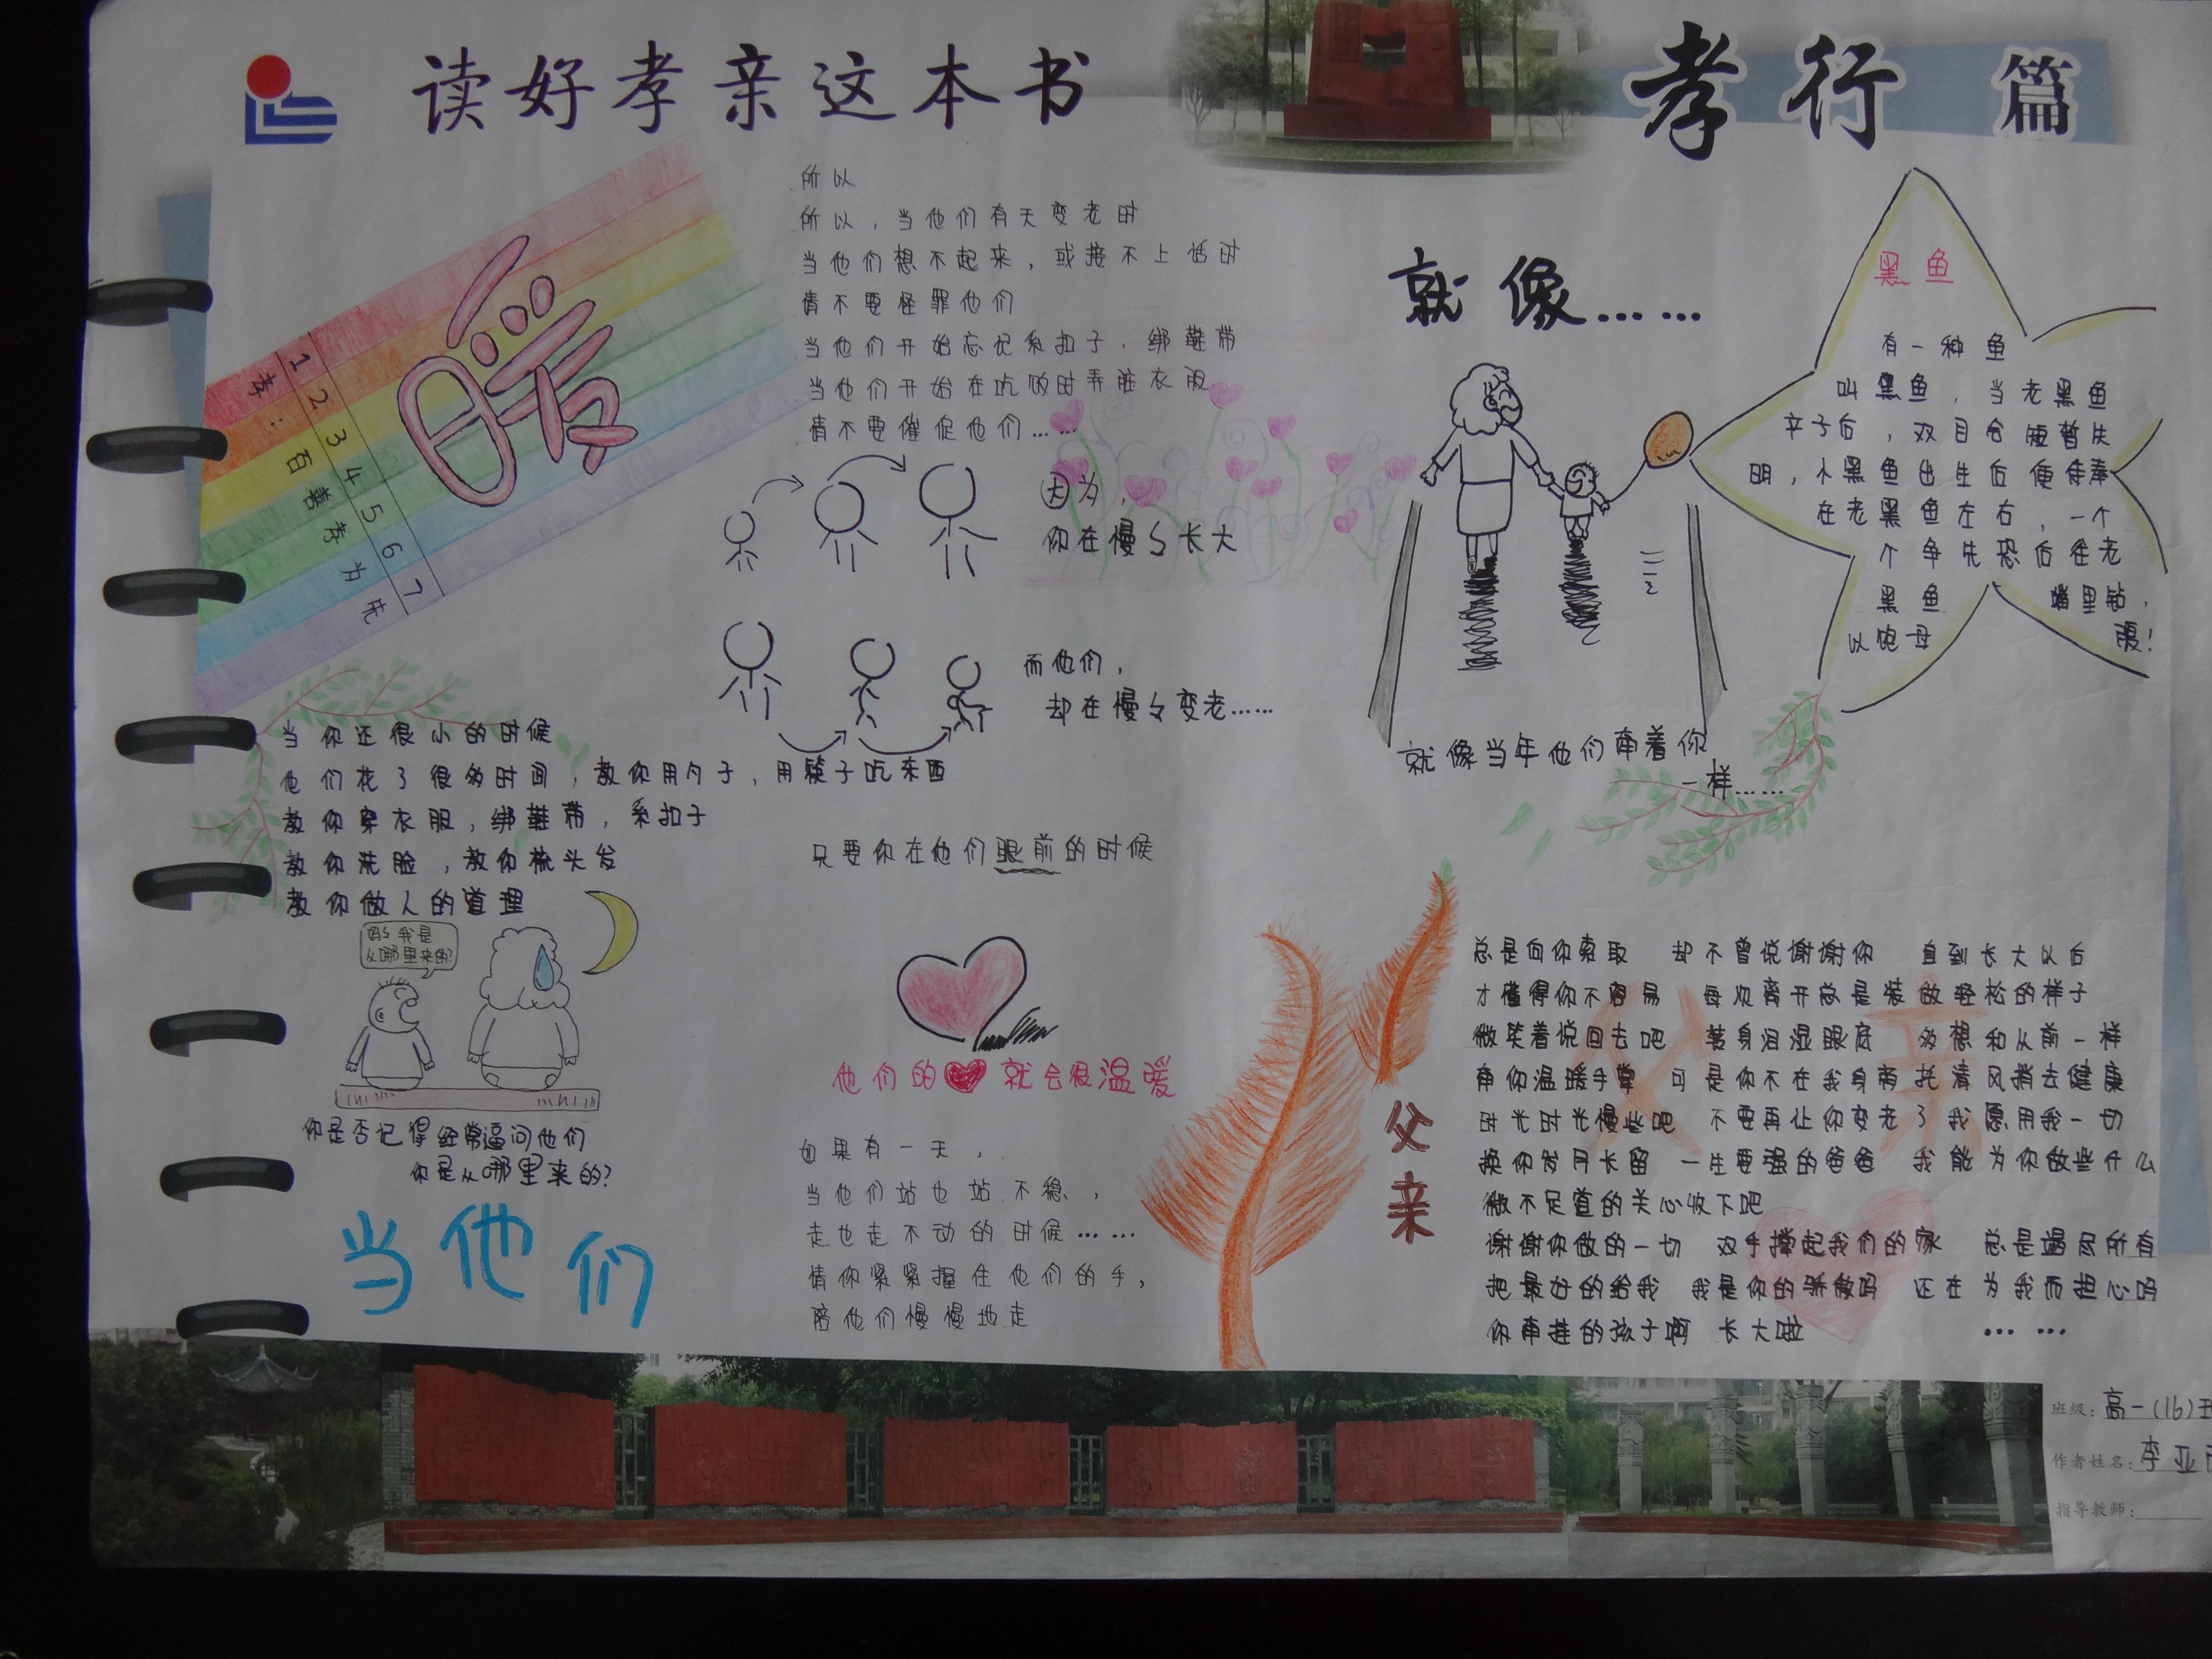 读好孝亲这本书
孝行 篇
暖
1 2 3 4 5 6 7
孝:百善孝为先
当你还很小的时候
他们花了很多时间，教你用勺子，用筷子吃东西
教你穿衣服，绑鞋带，系扣子
教你洗脸，教你梳头发
教你做人的道理
妈妈我是
从哪里来的?
你是否记得经常逼问他们
你是从哪里来的?
当他们
所以
所以，当他们有天变老时
当他们想不起来，或接不上话时
请不要怪罪他们
当他们开始忘记系扣子，绑鞋带
当他们开始在吃饭时弄脏衣服
请不要催促他们……
因为，
你在慢慢长大
而他们，
却在慢慢变老……
只要你在他们眼前的时候
他们的❤就会很温暖
如果有一天，
当他们站也站不稳，
走也走不动的时候……
请你紧紧握住他们的手，
陪他们慢慢地走
就像……
就像当年他们牵着你
一样……
黑鱼
有一种鱼
叫黑鱼，当老黑鱼
产子后，双目会短暂失
明，小黑鱼出生后便侍奉
在老黑鱼左右，一个
个争先恐后往老
黑鱼 嘴里钻，
以饱母 腹!
父亲
总是向你索取 却不曾说谢谢你 直到长大以后
才懂得你不容易 每次离开总是装做轻松的样子
微笑着说回去吧 转身泪湿眼底 多想和从前一样
牵你温暖手掌 可是你不在我身旁 托清风捎去健康
时光时光慢些吧 不要再让你变老了 我愿用我一切
换你岁月长留 一生要强的爸爸 我能为你做些什么
微不足道的关心收下吧
谢谢你做的一切 双手撑起我们的家 总是竭尽所有
把最好的给我 我是你的骄傲吗 还在为我而担心吗
你牵挂的孩子啊 长大啦 ……
父亲
班级：高一(16)
作者姓名：李亚
指导教师：